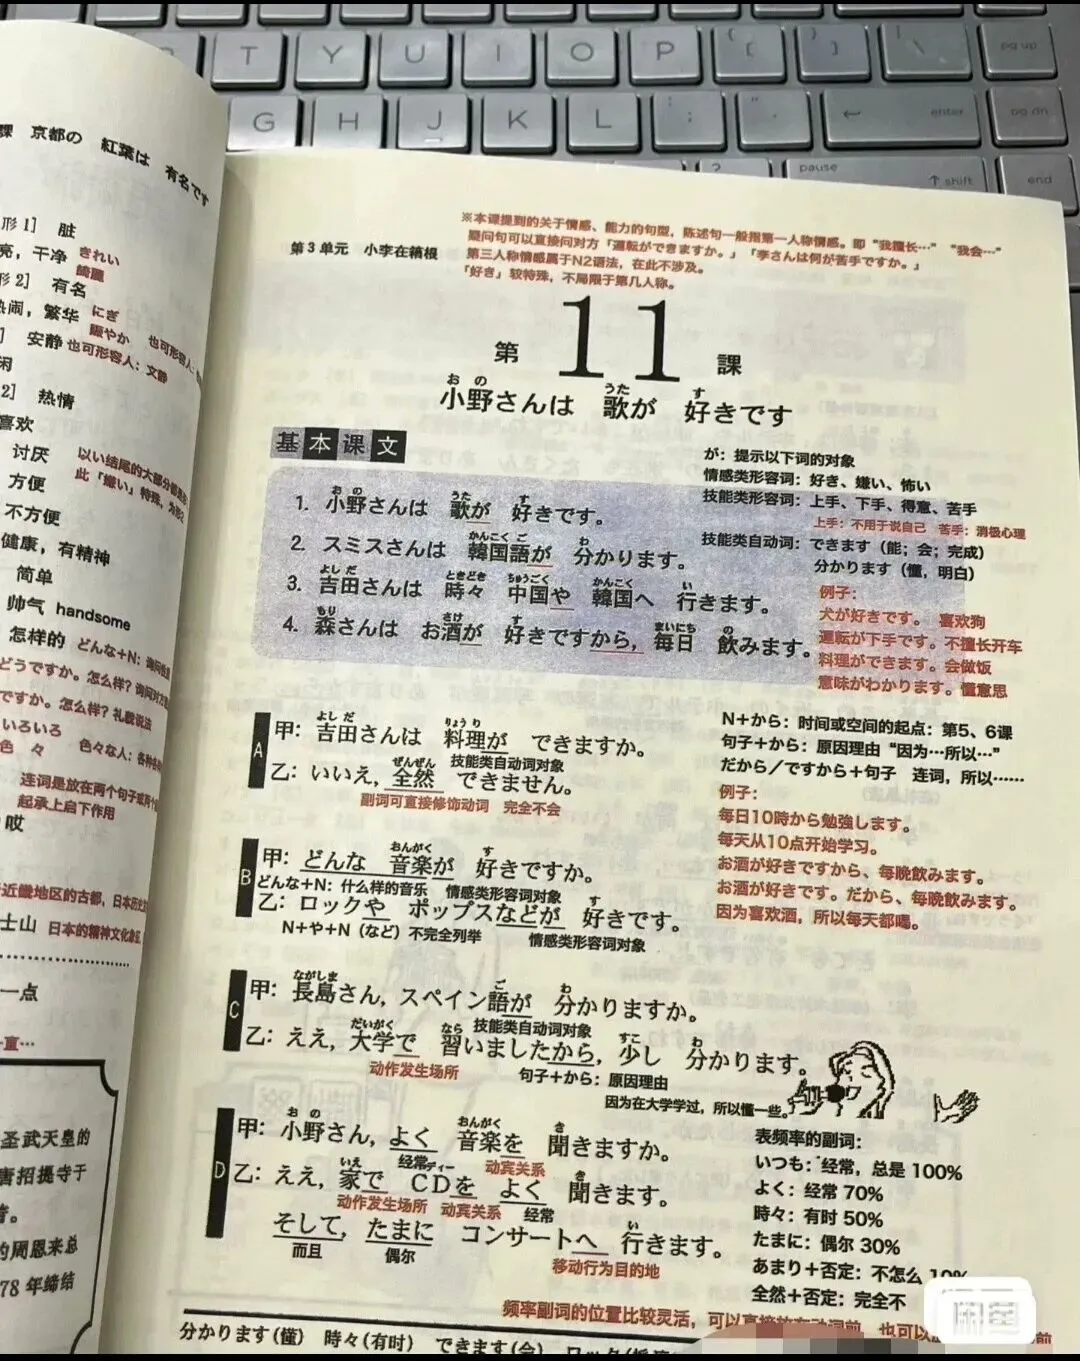 T Y U I O P
pg up
G H J K L
enter
pg dn
pause
shift
end
課 京都の 紅葉は 有名です
形1] 脏
亮，干净 きれい
綺麗
形2] 有名
热闹，繁华 にぎ
賑やか 也可形容人：
安静 也可形容人：文静
闲
2] 热情
喜欢
讨厌 以い结尾的大部分都是形
此「嫌い」特殊，为形2
方便
不方便
健康，有精神
简单
帅气 handsome
怎样的 どんな+N：询问
どうですか。怎么样？询问对方
ですか。怎么样？礼貌说法
いろいろ
色々 色々な人：各种各
连词是放在两个句子或两个
起承上启下作用
哎
近畿地区的古都，日本历史文
士山 日本的精神文化象征
一点
一直…
圣武天皇的
唐招提寺于
的周恩来总
78 年缔结
第3单元 小李在箱根
※本课提到的关于情感、能力的句型，陈述句一般指第一人称情感。即“我擅长…”“我会…”
疑问句可以直接问对方「運転ができますか。」「李さんは何が苦手ですか。」
第三人称情感属于N2语法，在此不涉及。
「好き」较特殊，不局限于第几人称。
第11課
おの うた す
小野さんは 歌が 好きです
基本课文
が：提示以下词的对象
情感类形容词：好き、嫌い、怖い
技能类形容词：上手、下手、得意、苦手
上手：不用于说自己 苦手：消极心理
技能类自动词：できます（能；会；完成）
分かります（懂，明白）
例子：
犬が好きです。 喜欢狗
運転が下手です。不擅长开车
料理ができます。会做饭
意味がわかります。懂意思
おの うた す
1. 小野さんは 歌が 好きです。
かんこくご わ
2. スミスさんは 韓国語が 分かります。
よしだ ときどき ちゅうごく かんこく い
3. 吉田さんは 時々 中国や 韓国へ 行きます。
もり さけ す まいにち の
4. 森さんは お酒が 好きですから，毎日 飲みます。
N+から：时间或空间的起点：第5、6课
句子+から：原因理由“因为…所以…”
だから／ですから+句子 连词，所以……
例子：
毎日10時から勉強します。
每天从10点开始学习。
お酒が好きですから、毎晩飲みます。
お酒が好きです。だから、毎晩飲みます。
因为喜欢酒，所以每天都喝。
A
よしだ りょうり
甲：吉田さんは 料理が できますか。
ぜんぜん 技能类自动词对象
乙：いいえ，全然 できません。
副词可直接修饰动词 完全不会
B
おんがく す
甲：どんな 音楽が 好きですか。
どんな+N：什么样的音乐 情感类形容词对象
す
乙：ロックや ポップスなどが 好きです。
N+や+N（など）不完全列举 情感类形容词对象
C
ながしま ご わ
甲：長島さん，スペイン語が 分かりますか。
だいがく なら 技能类自动词对象 すこ わ
乙：ええ，大学で 習いましたから，少し 分かります。
动作发生场所 句子+から：原因理由
因为在大学学过，所以懂一些。
D
おの おんがく き
甲：小野さん，よく 音楽を 聞きますか。
いえ 经常 ディー 动宾关系 き
乙：ええ，家で CDを よく 聞きます。
动作发生场所 动宾关系 经常
い
そして，たまに コンサートへ 行きます。
而且 偶尔 移动行为目的地
表频率的副词：
いつも：经常，总是 100%
よく：经常 70%
時々：有时 50%
たまに：偶尔 30%
あまり+否定：不怎么 10%
全然+否定：完全不
频率副词的位置比较灵活，可以直接放在动词前，也可以
分かります(懂) 時々(有时) できます(会)
闲鱼